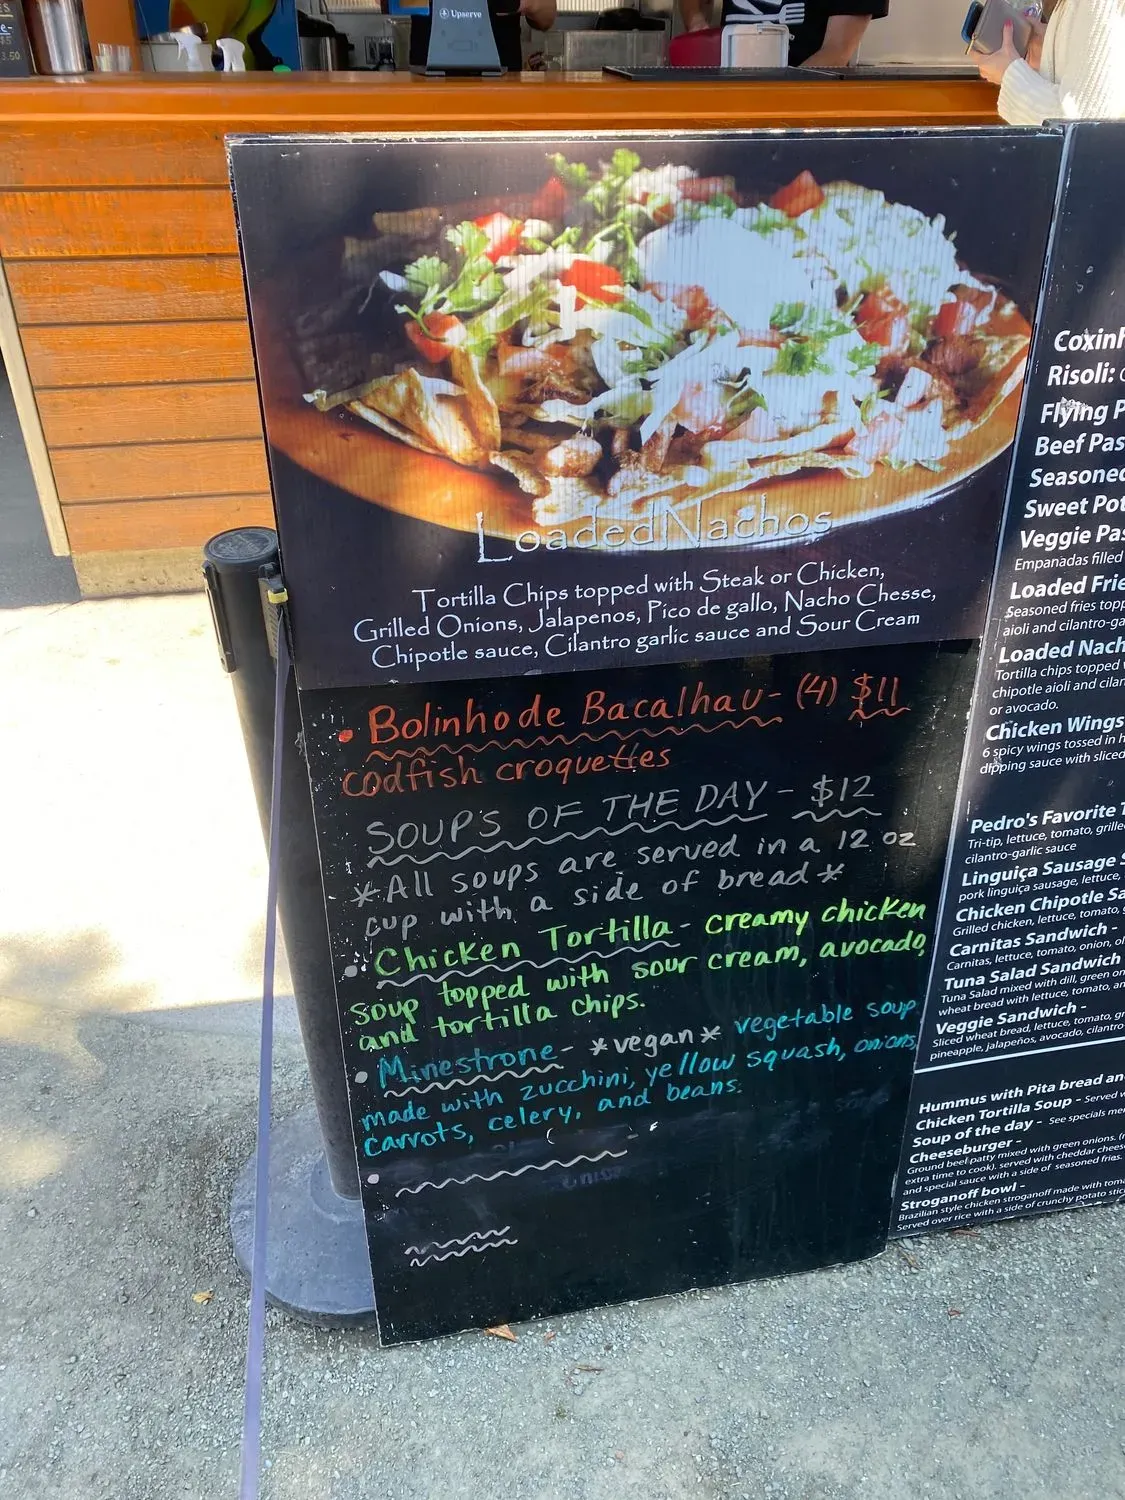 Upserve
3.50
Loaded Nachos
Tortilla Chips topped with Steak or Chicken,
Grilled Onions, Jalapenos, Pico de gallo, Nacho Chesse,
Chipotle sauce, Cilantro garlic sauce and Sour Cream
• Bolinho de Bacalhau - (4) $11
codfish croquettes
SOUP'S OF THE DAY - $12
*All soups are served in a 12 oz
cup with a side of bread*
• Chicken Tortilla - creamy chicken
soup topped with sour cream, avocado,
and tortilla chips.
• Minestrone - *vegan* vegetable soup
made with zucchini, yellow squash, onions,
carrots, celery, and beans.
Risoli:
Flying
Beef
Seasoned
Sweet
Veggie
Empanadas filled
Loaded
Seasoned fries
aioli and
Loaded
Tortilla chips topped
chipotle aioli and
or avocado.
Chicken Wings
6 spicy wings tossed in
dipping sauce with sliced
Pedro's Favorite
Tri-tip, lettuce, tomato,
cilantro-garlic sauce
Linguiça Sausage
pork linguiça sausage, lettuce,
Chicken Chipotle
Grilled chicken, lettuce, tomato,
Carnitas Sandwich -
Carnitas, lettuce, tomato, onion,
Tuna Salad Sandwich
Tuna Salad mixed with dill, green
wheat bread with lettuce, tomato,
Veggie Sandwich -
Sliced wheat bread, lettuce, tomato,
pineapple, jalapeños, avocado, cilantro
Hummus with Pita bread and
Chicken Tortilla Soup - Served
Soup of the day - See specials
Cheeseburger -
Ground beef patty mixed with green onions.
extra time to cook). served with cheddar
and special sauce with a side of seasoned fries.
Stroganoff bowl -
Brazilian style chicken stroganoff made with
Served over rice with a side of crunchy potato